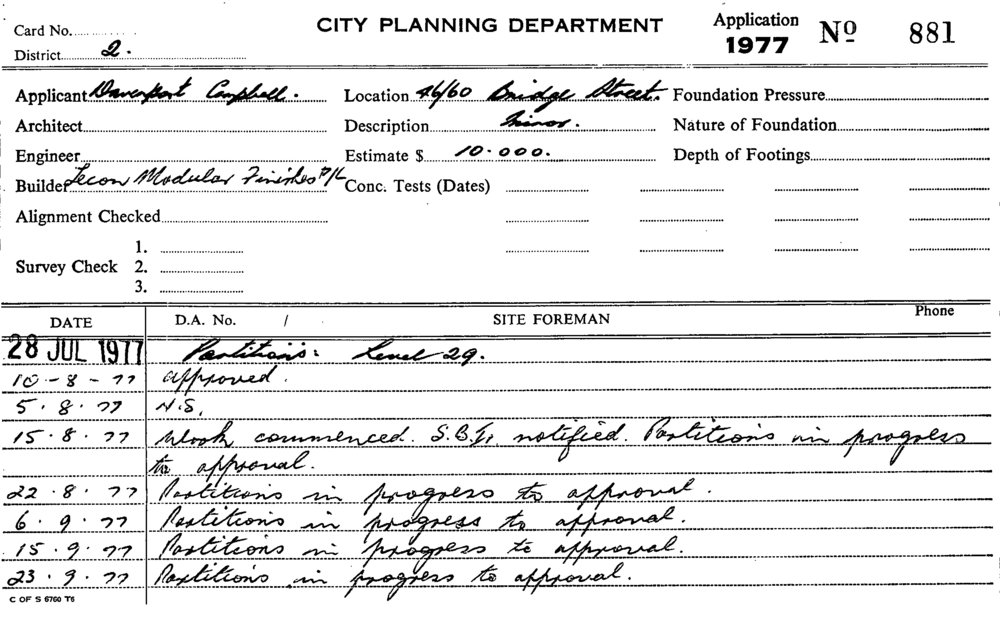 Card No. CITY PLANNING DEPARTMENT Application 1977 Nº 881
District 2.
Applicant Davenport Campbell. Location 46/60 Bridge Street. Foundation Pressure
Architect Description Minor. Nature of Foundation
Engineer Estimate $ 10.000. Depth of Footings
Builder Tecon Modular Finishes P/L Conc. Tests (Dates)
Alignment Checked
1.
Survey Check 2.
3.
DATE D.A. No. / SITE FOREMAN Phone
28 JUL 1977 Partitions: Level 29.
10-8-77 approved.
5.8.77 N.S.
15.8.77 Work commenced. S.B.I. notified. Partitions in progress
to approval.
22.8.77 Partitions in progress to approval.
6.9.77 Partitions in progress to approval.
15.9.77 Partitions in progress to approval.
23.9.77 Partitions in progress to approval.
C OF S 6760 T6